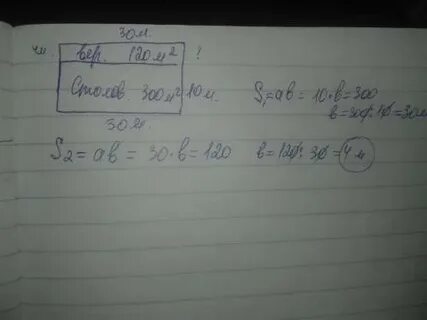 30м.
4м. вер. 120м² ?
Столов. 300м² 10м.
30м.
S₁=ab=10·b=300
b=300:10=30м
S₂=ab=30·b=120 b=120:30=4м